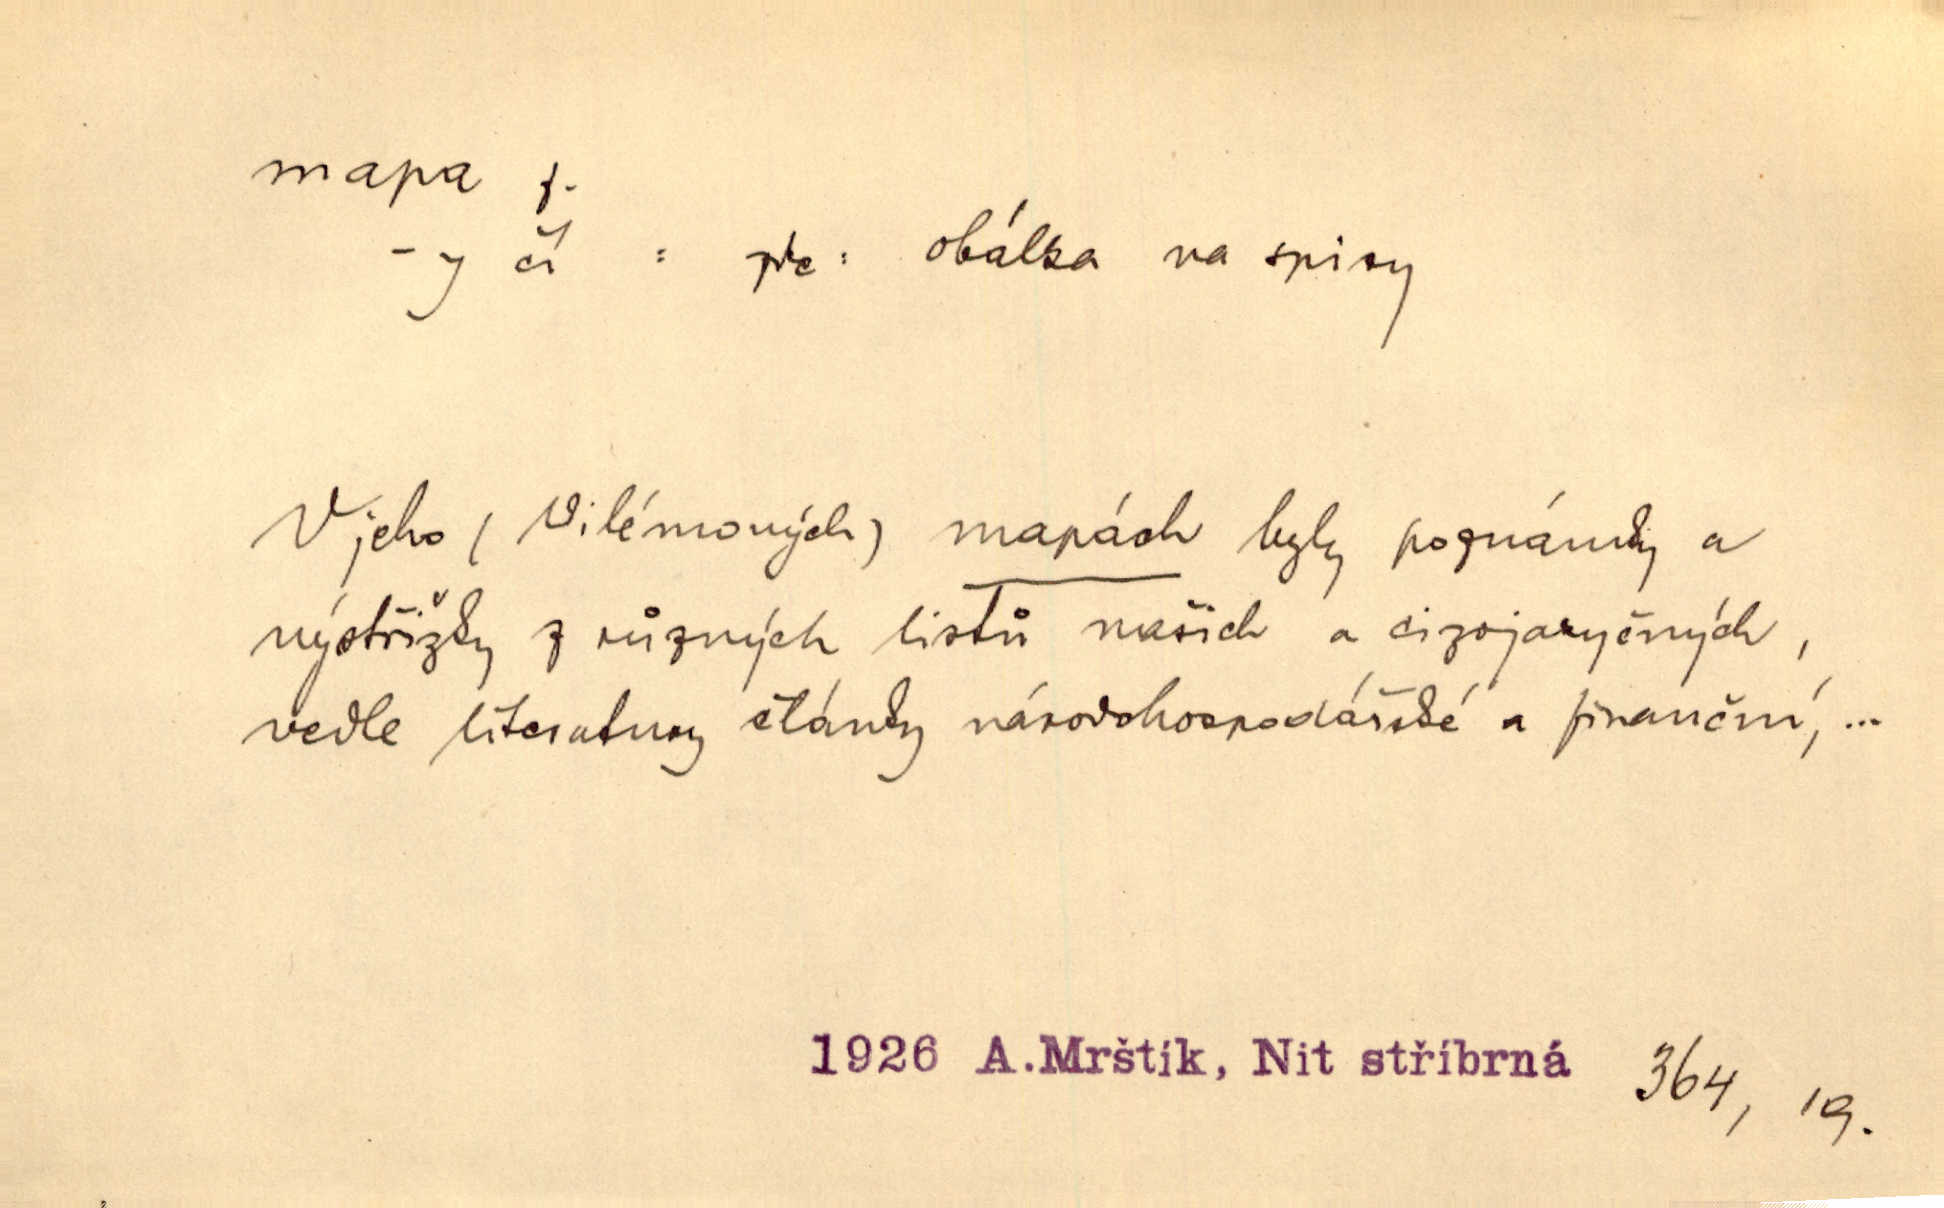 mapa f.
-y čí : pře : obálka na spisy
V jeho (Vilémových) mapách byly poznámky a
výstřižky z různých listů našich a cizojazyčných,
vedle literatury články národohospodářské a finanční, ...
1926 A.Mrštík, Nit stříbrná 364, 19.